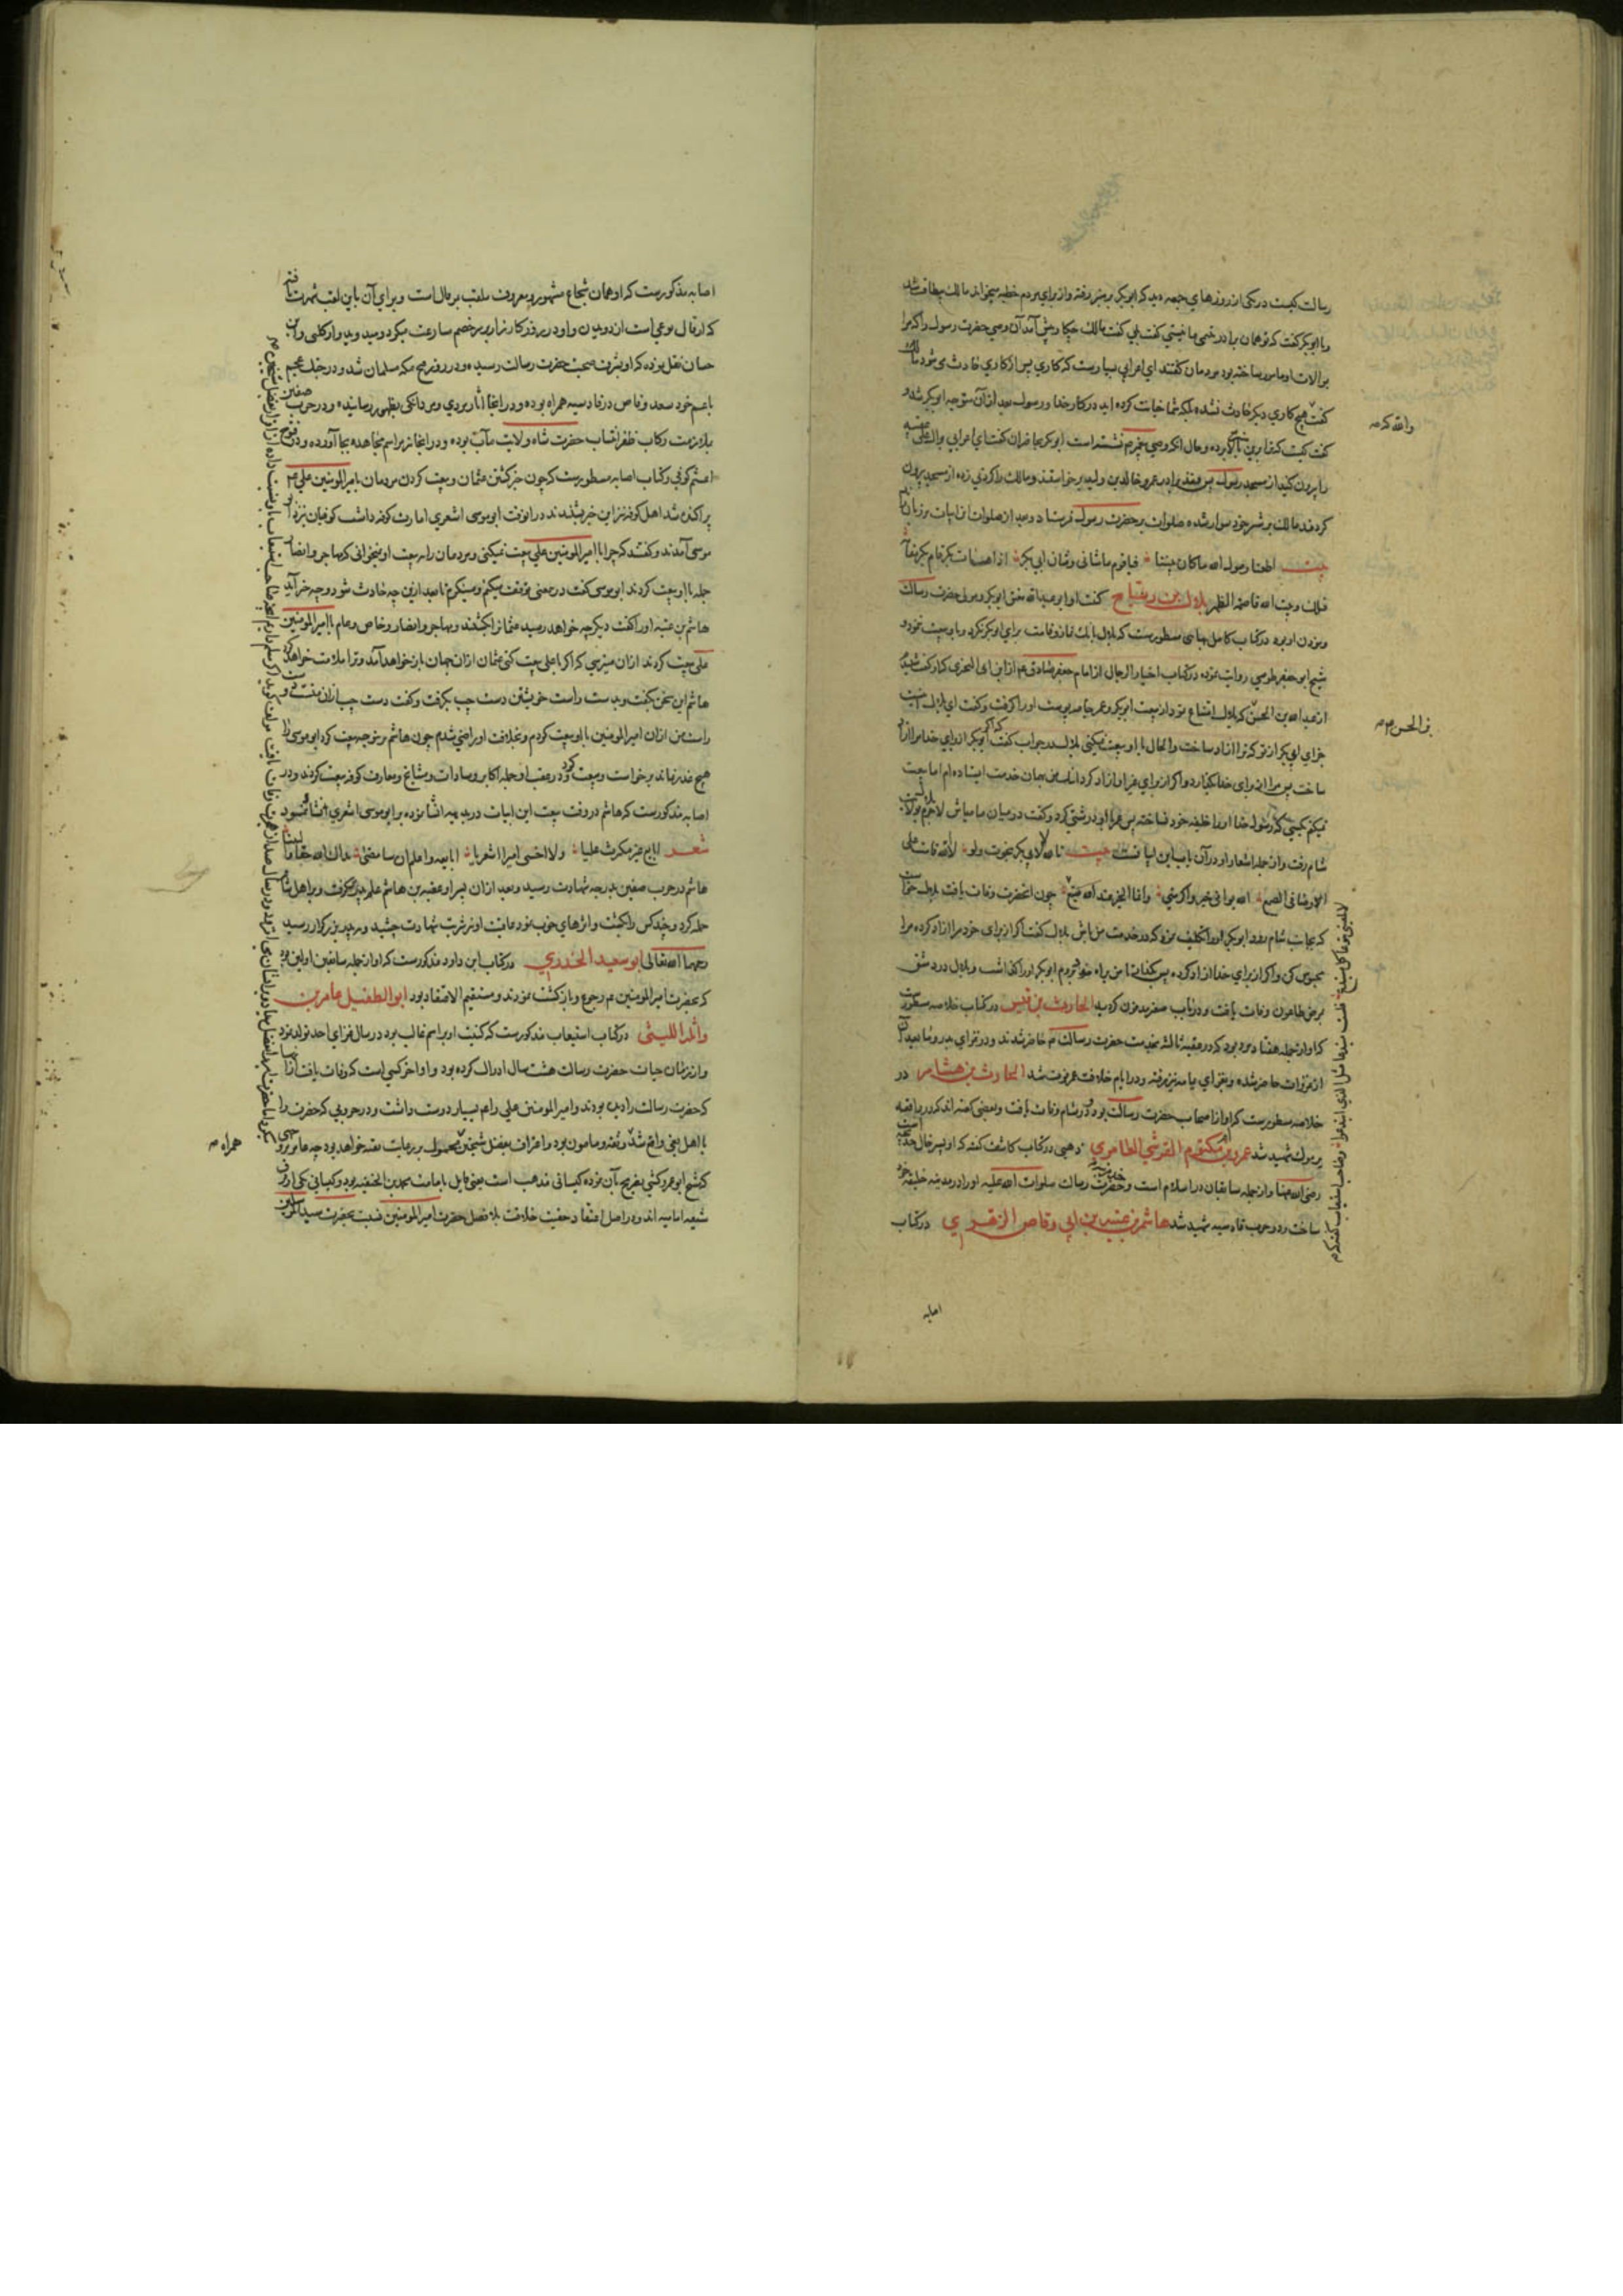 رسالت کیست در یکی از روزهای جمعه دید که ابوبکر بر منبر رفته و از برای مردم خطبه میخواند مالک بیطاقت شد
و با ابوبکر گفت که تو همان برادر تیمی ما نیستی گفت بلی گفت مالک چکار پیش آمد آن وصی حضرت رسول را که مرا
بولایت او مامور ساخته بود مردمان گفتند ای اعرابی بسیارست که کاری پس از کاری حادث می شود مالک
گفت هیچ کاری دیگر حادث نشده بلکه شما خیانت کرده اید در کار خدا و رسول بعد از آن متوجه ابوبکر شد و
گفت کیست که ترا برین منبر بالا برده و حال آنکه وصی پیغمبر نشسته است ابوبکر بحاضران گفت این اعرابی بوال علی عقبیه
را بیرون کنید از مسجد رسول پس قنفذ برادر عمرو خالد بن ولید برخواستند و مالک را گردنی زده از مسجد بیرون
کردند مالک بر شتر خود سوار شده صلوات بر حضرت رسول فرستاد و بعد از صلوات این ابیات بر زبان راند
بیت اطعنا رسول الله ما کان بیننا فیا قوم ما شانی و شان ابی بکر اذا مات بکر قام بکر مقامه
فتلک و بیت الله قاصمة الظهر بلال بن رباح کنیت او ابو عبدالله معتق ابوبکر و مولی حضرت رسالت
و موذن او بود در کتاب کامل بهائی مسطورست که بلال بانگ نماز و اقامت برای ابوبکر نکرد و با و بیعت ننمود و
شیخ ابو جعفر طوسی روایت نموده در کتاب اختیار الرجال از امام جعفر صادق
از عبد الله بن الحسن که بلال امتناع نمود از بیعت ابوبکر و عمر جامه پوست او را گرفت و گفت ای بلال اینست
جزای ابی بکر از تو که ترا آزاد ساخت و الحال با او بیعت نمیکنی بلال در جواب گفت که اگر ابوبکر از برای خدا مرا آزاد
ساخت پس مرا از برای خدا بگذارد و اگر از برای غیر او آزاد کرد اینک من بهمان خدمت ایستاده ام اما بیعت
نمیکنم بکسی که رسول خدا او را خلیفه خود نساخته پس عمر با او درشتی کرد و گفت در میان ما مباش لاجرم بلال
شام رفت و از جمله اشعار او در آن باب این ابیاتست بیت تالله لا بابی بکر نجوت ولو لا الله قامت علی
اوصالی الضبع الله بوانی خیرا و اکرمنی و انما الخیر عند الله متبع چون آنحضرت وفات یافت بلال خواست
که بجانب شام رود ابوبکر او را تکلیف نمود که در خدمت من باش بلال گفت اگر از برای خود مرا آزاد کرده مرا
محبوس کن و اگر از برای خدا آزاد کرده پس بگذار تا من براه خود بروم ابوبکر او را گذاشت و بلال در دمشق
بمرض طاعون وفات یافت و در باب صغیر مدفون گردید الحارث بن قیس در کتاب خلاصه مسطورست
که او از جمله هفتاد مرد بود که در عقبه ثالثه بخدمت حضرت رسالت م حاضر شدند و در غزای بدر و ما بعد آن
از غزوات حاضر شده و بغزای یمامه نیز رفته و در ایام خلافت عمر فوت شد الحارث بن هشام در
خلاصه مسطورست که او از اصحاب حضرت رسالت بود و در شام وفات یافت و بعضی گفته اند که در واقعه
یرموک شهید شد عمرو بن ام مکتوم القرشی العامری ذهبی در کتاب کاشف گفته که او پسر خال خدیجه است
رضی الله عنها و از جمله سابقان در اسلام است و حضرت رسالت صلوات الله علیه او را در مدینه خلیفه خود
ساخت و در حرب قادسیه شهید شد هاشم بن عتبه بن ابی وقاص الزهری در کتاب
اصابه
والله که صح
بن الحسن م صح
اصابه مذکورست که او همان شجاع مشهور و معروف ملقب بمرقال است و برای آن باین لقب شهرت یافته
که ارقال نوعی است از دویدن و او در روز کارزار بر خصم مسارعت میکرد و میدوید و از کلبی و ابن
حسان نقل نموده که او بشرف صحبت حضرت رسالت رسیده و در روز فتح مکه مسلمان شد و در جنگ عجم
با عم خود سعد وقاص در قادسیه همراه بوده و در آنجا آثار مردی و مردانگی بظهور رسانیده و در حرب صفین
ملازمت رکاب ظفر انتساب حضرت شاه ولایت مآب بوده و در آنجا نیز مراسم مجاهده بجا آورده و در فتوح
اعثم کوفی و کتاب اصابه مسطورست که چون خبر کشتن عثمان و بیعت کردن مردمان با میر المومنین علی ع
پراکنده شد اهل کوفه نیز این خبر شنیدند در آنوقت ابوموسی اشعری امارت کوفه داشت کوفیان نزد ابو
موسی آمدند و گفتند که چرا با امیر المومنین علی بیعت نمیکنی و مردمان را به بیعت او نمیخوانی که مهاجر و انصار
جمله با او بیعت کردند ابوموسی گفت درین معنی توقف میکنم و مینگرم تا بعد ازین چه حادث شود و چه خبر آید
هاشم بن عتبه او را گفت دیگر چه خواهد رسید عثمان را بکشتند و مهاجر و انصار و خاص و عام با امیر المومنین
علی بیعت کردند از آن میترسی که اگر با علی بیعت کنی عثمان از آن جهان باز خواهد آمد و ترا ملامت خواهد کرد
هاشم این سخن بگفت و بدست راست خویشتن دست چپ بگرفت و گفت دست چپ از آن منست و
راست من از آن امیر المومنین با او بیعت کردم و بخلافت او راضی شدم چون هاشم برینوجه بیعت کرد ابوموسی را
هیچ عذر نماند برخواست و بیعت کرد و در عقب او جمله اکابر و سادات و مشایخ و معارف کوفه بیعت کردند و در
اصابه مذکورست که هاشم در وقت بیعت این ابیات در بدیهه انشا نموده بر ابوموسی اشعری انشاد نمود
شعر ابایع غیر مکترث علیا ولا اخشی امیرا اشعریا ابایعه و اعلم ان سارضی بذاک الله حقا و النبیا
هاشم در حرب صفین بدرجه شهادت رسید و بعد از آن پسر او عتبه بن هاشم علم پدر بگرفت و بر اهل شام
حمله کرد و چند کس را بکشت و اثرهای خوب نمود عاقبت او نیز شربت شهادت چشید و به پدر بزرگوار رسید
رحمهما الله تعالی ابو سعید الخدری در کتاب ابن داود مذکورست که او از جمله سابقین اولین بود
که بحضرت امیر المومنین ع م رجوع و بازگشت نمودند و مستقیم الاعتقاد بود ابو الطفیل عامر بن
واثلة اللیثی در کتاب استیعاب مذکورست که کنیت او بر اسم غالب بود در سال غزای احد تولد نمود
و از زمان حیات حضرت رسالت هشت سال ادراک کرده بود و او آخر کسی است که وفات یافت از آنها
که حضرت رسالت را دیده بودند و امیر المومنین علی را م بسیار دوست داشت و در حروبی که حضرت را
با اهل بغی واقع شد و ثقه و مامون بود و اعتراف بفضل شیخین محمول بر رعایت تقیه خواهد بود چه
که شیخ ابو عمرو کشی تصریح بآن نموده کیسانی مذهب است یعنی قایل بامامت محمد بن الحنفیه بود و کیسانی یکی از فرق
شیعه امامیه اند و در اصل اعتقاد حقیت خلافت بلا فصل حضرت امیر المومنین نسبت بحضرت سید المرسلین
همراه صح